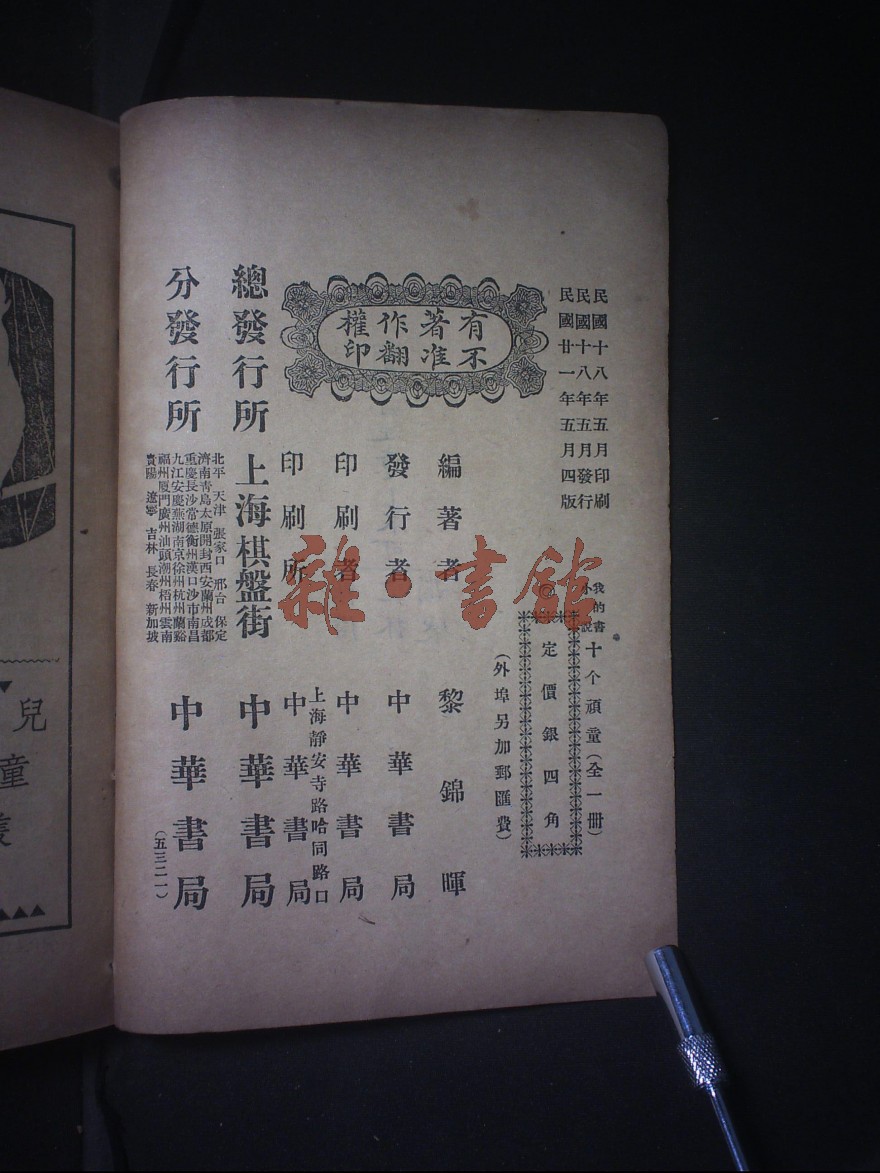 民國十八年五月印刷
民國十八年五月發行
民國廿一年五月四版
我的書
小說
十个頑童(全一冊)
◎定價銀四角
(外埠另加郵匯費)
有著作權
不准翻印
編著者 黎錦暉
發行者 中華書局
印刷者 中華書局
上海靜安寺路哈同路口
印刷所 中華書局
總發行所 上海棋盤街 中華書局
分發行所 中華書局
北平 天津 張家口 邢台 保定
濟南青島太原開封西安蘭州成都
重慶長沙常德衡州漢口沙市南昌
九江安慶蕪湖南京徐州杭州蘭谿
福州厦門廣州汕頭潮州梧州雲南
貴陽 遼寧 吉林 長春 新加坡
(五三二一)
兒童
雜·書館